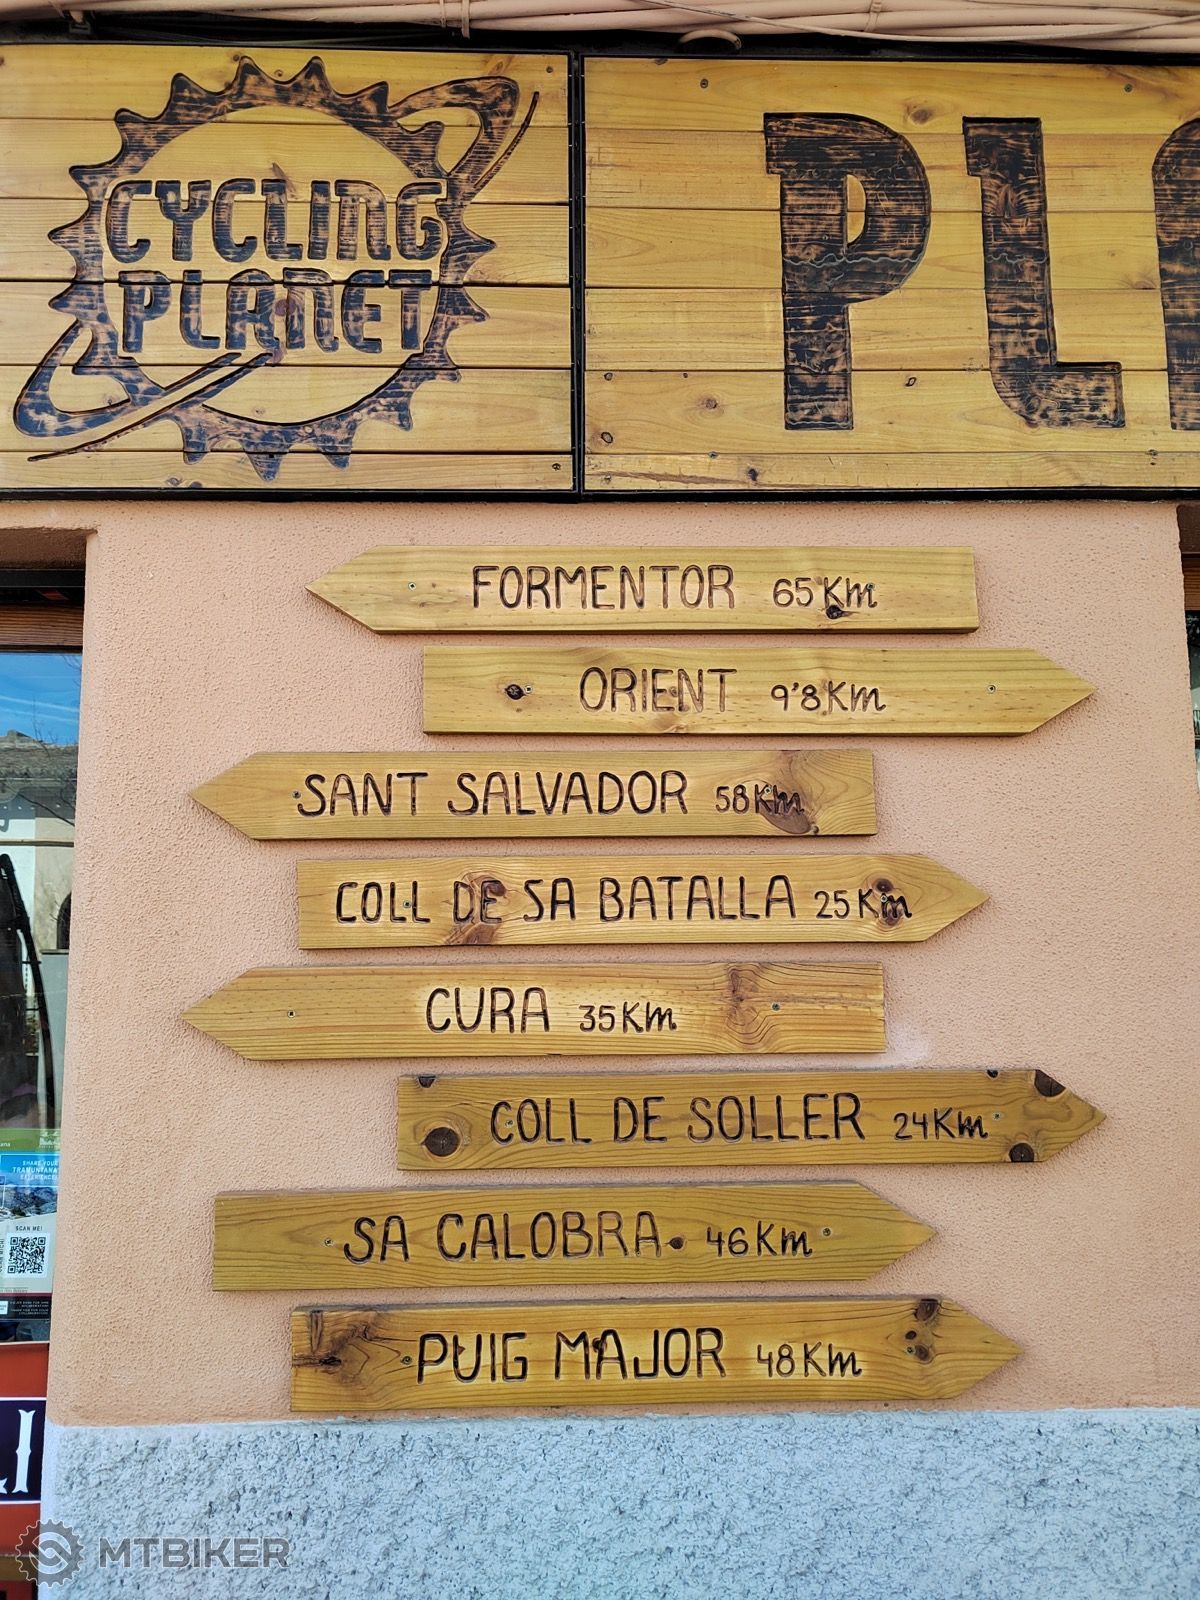 CYCLING
PLANET
PL
FORMENTOR 65Km
ORIENT 9'8Km
SANT SALVADOR 58Km
COLL DE SA BATALLA 25Km
CURA 35Km
COLL DE SOLLER 24Km
SA CALOBRA 46Km
PUIG MAJOR 48Km
SHARE YOUR
TRAMUNTANA
EXPERIENCE!
SCAN ME!
MTBIKER